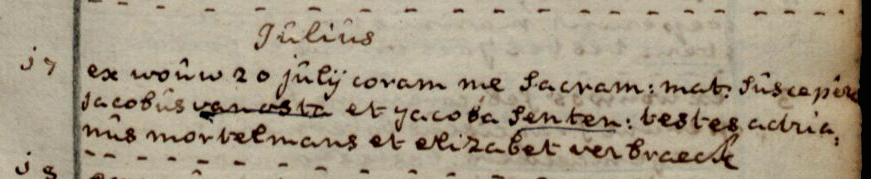 Jûliûs
j7 ex woûw 20 jûlij coram me sacram: mat: sûscepêre
jacobûs van osta et jacoba senten: testes adria,
nûs mortelmans et elizabet verbraeck
j8